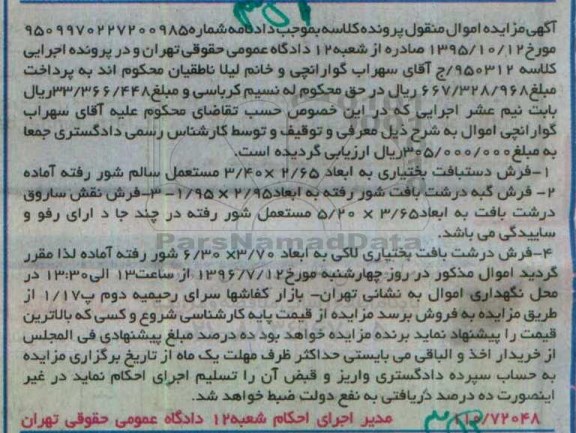 آگهی مزایده اموال منقول پرونده کلاسه بموجب دادنامه شماره ۹۵۰۹۹۷۰۲۲۷۲۰۰۹۸۵
مورخ ۱۳۹۵/۱۰/۱۲ صادره از شعبه ۱۲ دادگاه عمومی حقوقی تهران و در پرونده اجرایی
کلاسه ۹۵۰۳۱۲/ج آقای سهراب گوارانچی و خانم لیلا ناطقیان محکوم اند به پرداخت
مبلغ ۶۶۷/۳۲۸/۹۶۸ ریال در حق محکوم له نسیم کرباسی و مبلغ ۳۳/۳۶۶/۴۴۸ ریال
بابت نیم عشر اجرایی که در این خصوص حسب تقاضای محکوم علیه آقای سهراب
گوارانچی اموال به شرح ذیل معرفی و توقیف و توسط کارشناس رسمی دادگستری جمعا
به مبلغ ۳۰۵/۰۰۰/۰۰۰ ریال ارزیابی گردیده است.
۱-فرش دستبافت بختیاری به ابعاد ۲/۶۵ ×۳/۴۰ مستعمل سالم شور رفته آماده
۲- فرش گبه درشت بافت شور رفته به ابعاد ۲/۹۵×۱/۹۵- ۳-فرش نقش ساروق
درشت بافت به ابعاد ۳/۶۵ × ۵/۲۰ مستعمل شور رفته در چند جا د ارای رفو و
ساییدگی می باشد.
۴-فرش درشت بافت بختیاری لاکی به ابعاد ۳/۷۰ ×۶/۳۰ شور رفته آماده لذا مقرر
گردید اموال مذکور در روز چهارشنبه مورخ ۱۳۹۶/۷/۱۲ از ساعت ۱۳ الی ۱۳:۳۰ در
محل نگهداری اموال به نشانی تهران- بازار کفاشها سرای رحیمیه دوم پ ۱/۱۷ از
طریق مزایده به فروش برسد مزایده از قیمت پایه کارشناسی شروع و کسی که بالاترین
قیمت را پیشنهاد نماید برنده مزایده خواهد بود ده درصد مبلغ پیشنهادی فی المجلس
از خریدار اخذ و الباقی می بایستی حداکثر ظرف مهلت یک ماه از تاریخ برگزاری مزایده
به حساب سپرده دادگستری واریز و قبض آن را تسلیم اجرای احکام نماید در غیر
اینصورت ده درصد دریافتی به نفع دولت ضبط خواهد شد.
۱۱۰/۷۲۰۴۸ مدیر اجرای احکام شعبه ۱۲ دادگاه عمومی حقوقی تهران
ParsNamadData